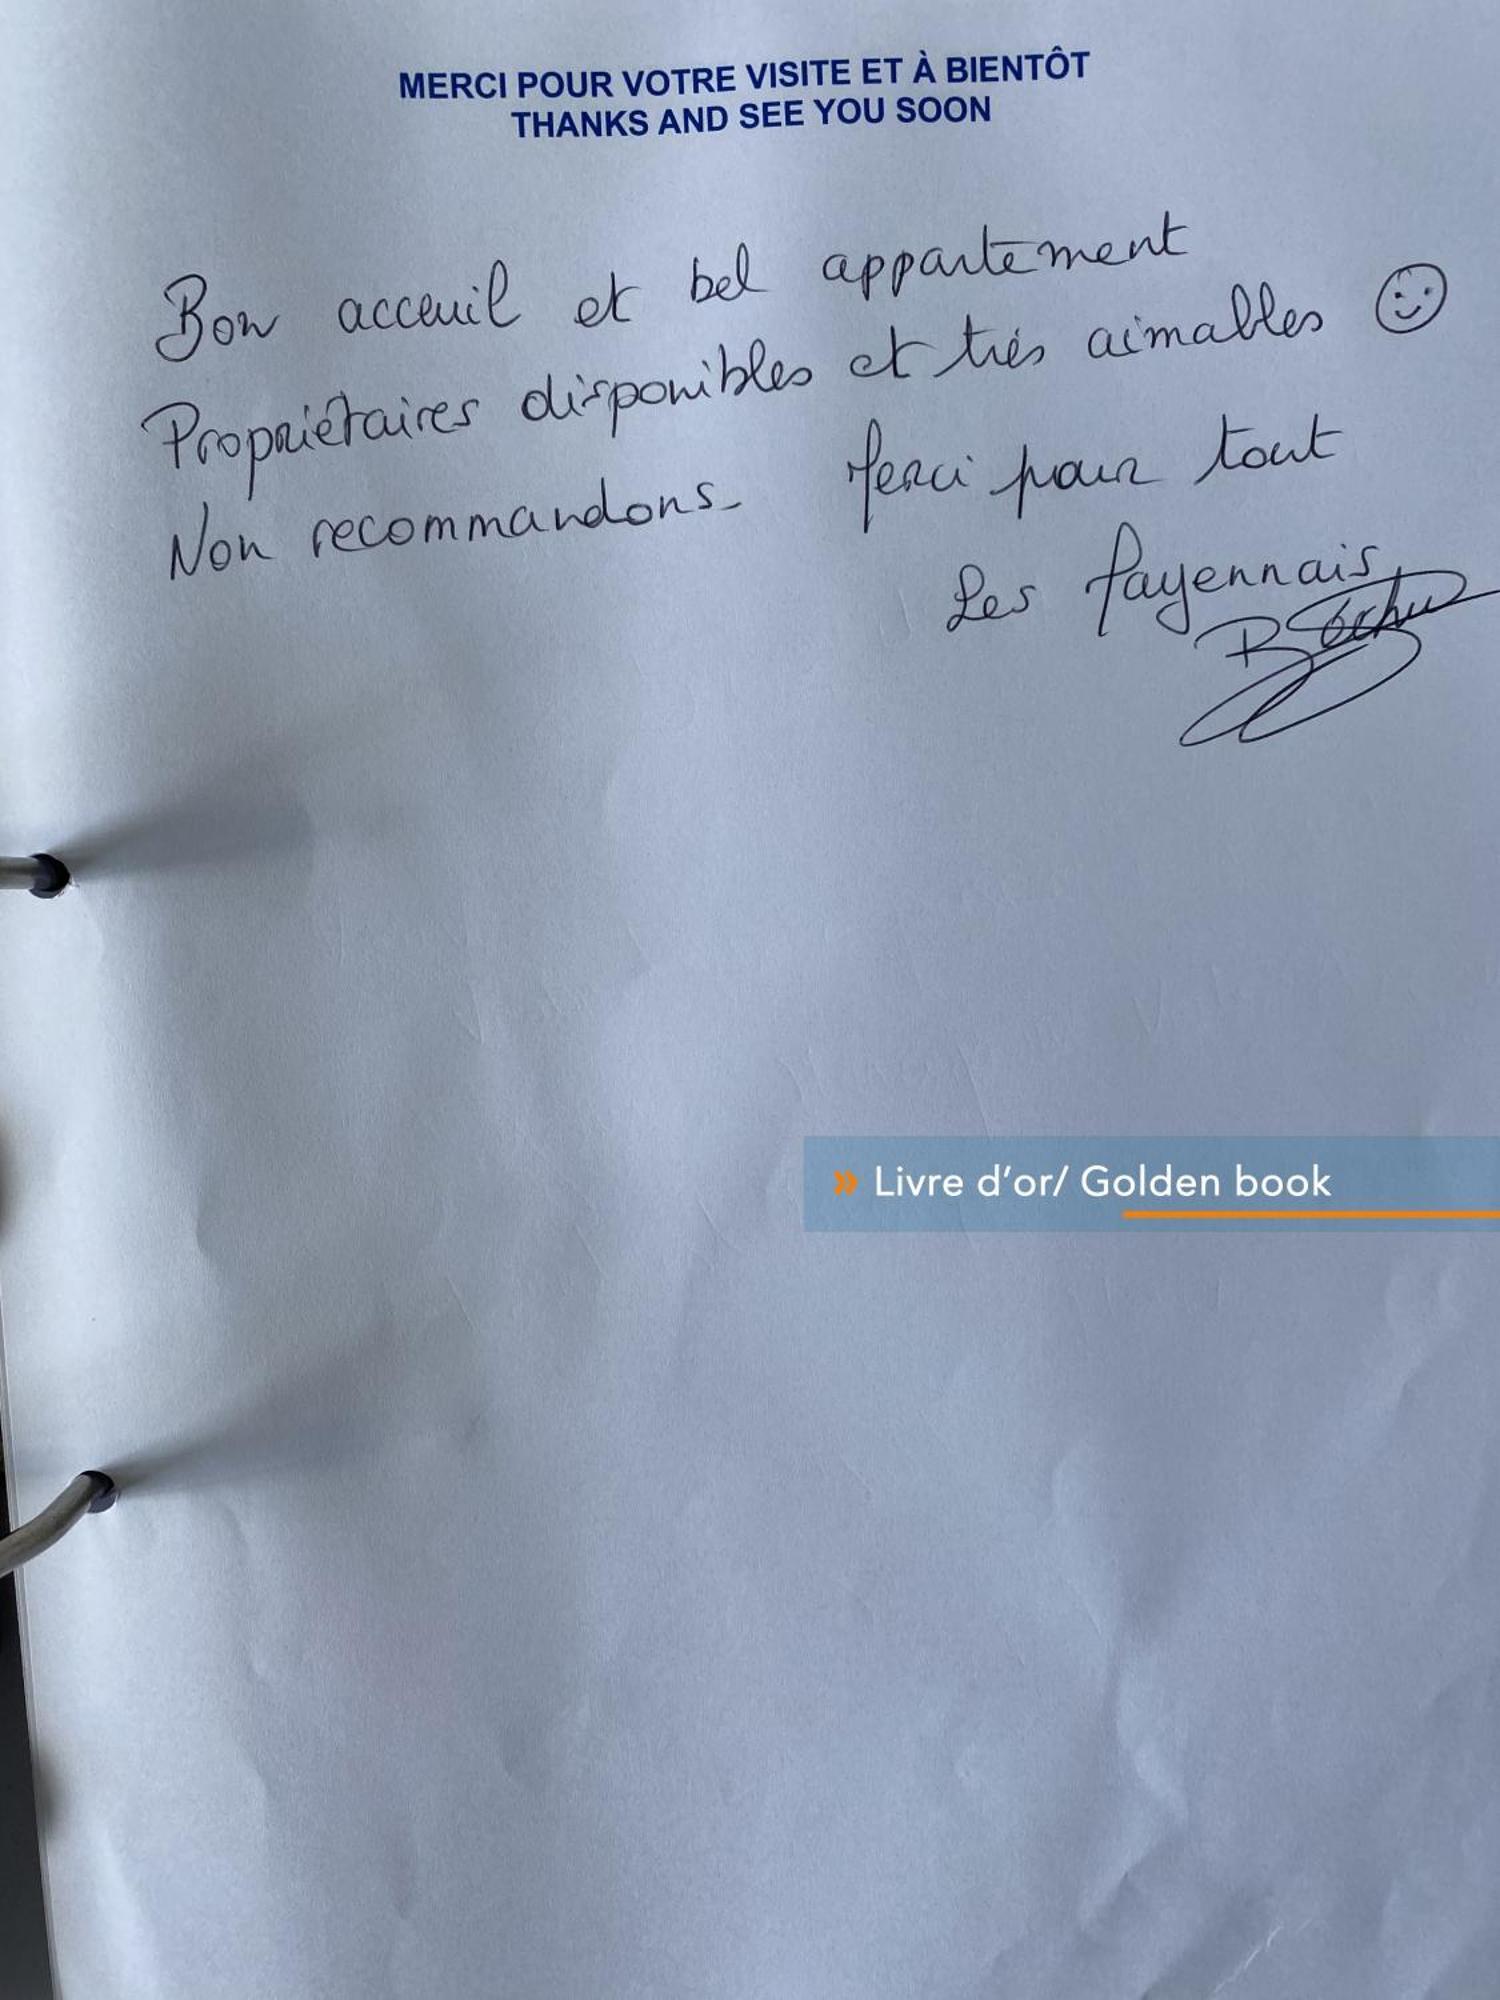 MERCI POUR VOTRE VISITE ET À BIENTÔT
THANKS AND SEE YOU SOON
Bon acceuil et bel appartement
Propriétaires disponibles et très aimables
Non recommandons_ Merci pour tout
Les fayennais
» Livre d'or/ Golden book